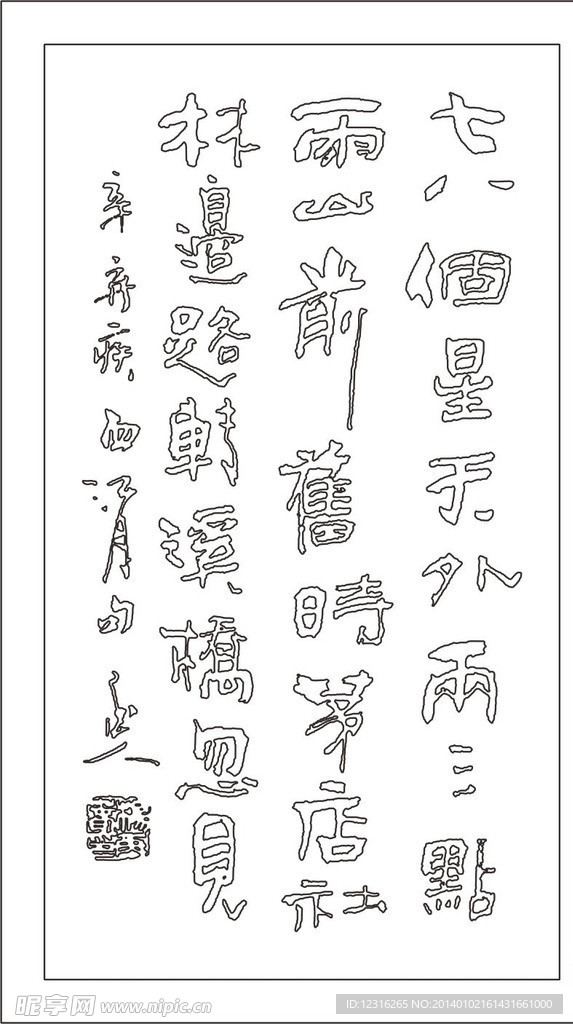 七八個星天外兩三點
雨山前舊時茅店社
林邊路轉溪橋忽見
辛弃疾西江月句
昵享网 www.nipic.cn
ID:12316265 NO:20140102161431661000